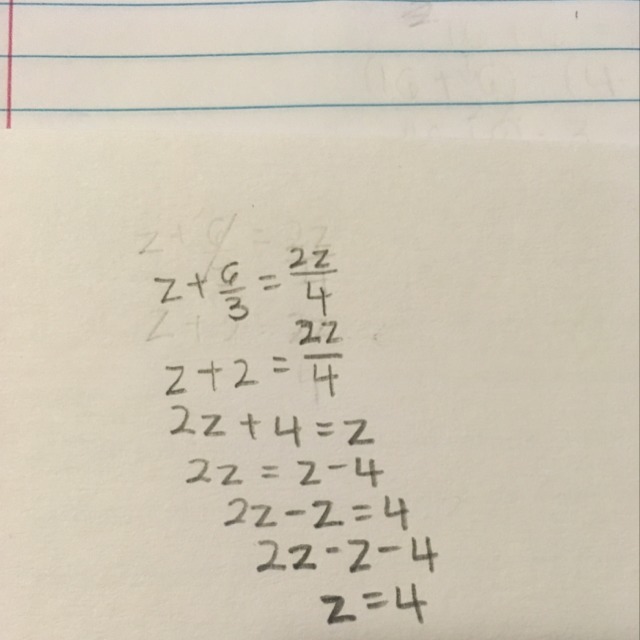 z + 6/3 = 2z/4
z + 2 = 2z/4
2z + 4 = z
2z = z - 4
2z - z = 4
2z - z - 4
z = 4